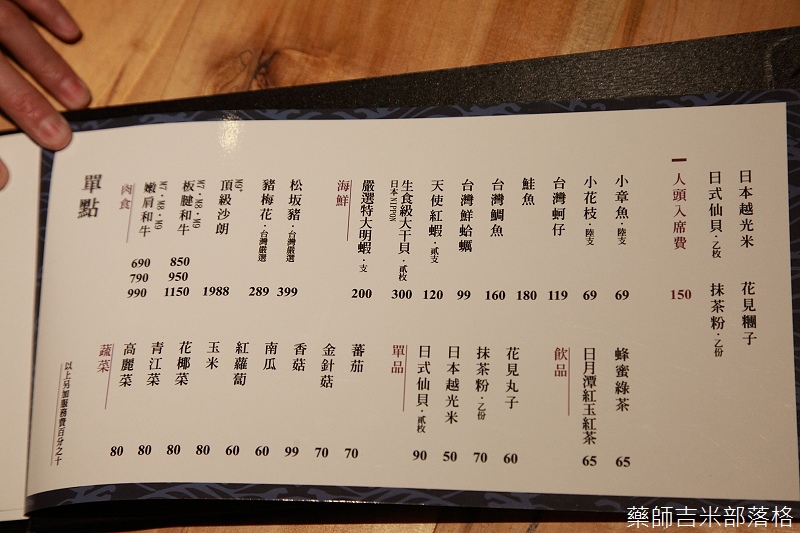 單點
肉食
嫩肩和牛 M7・M8・M9 690 790 990
板腱和牛 M7・M8・M9 850 950 1150
頂級沙朗 M9+ 1988
豬梅花・台灣嚴選 289
松坂豬・台灣嚴選 399
海鮮
嚴選特大明蝦・支 200
生食級大干貝・貳枚 日本NIPPON 300
天使紅蝦・貳支 120
台灣鮮蛤蠣 99
台灣鯛魚 160
鮭魚 180
台灣蚵仔 119
小花枝・陸支 69
小章魚・陸支 69
人頭入席費 150
日式仙貝・乙枚 抹茶粉・乙份
日本越光米 花見糰子
蔬菜
高麗菜 80
青江菜 80
花椰菜 80
玉米 80
紅蘿蔔 60
南瓜 60
香菇 99
金針菇 70
蕃茄 70
單品
日式仙貝・貳枚 90
日本越光米 50
抹茶粉・乙份 70
花見丸子 60
飲品
日月潭紅玉紅茶 65
蜂蜜綠茶 65
以上另加服務費百分之十
藥師吉米部落格